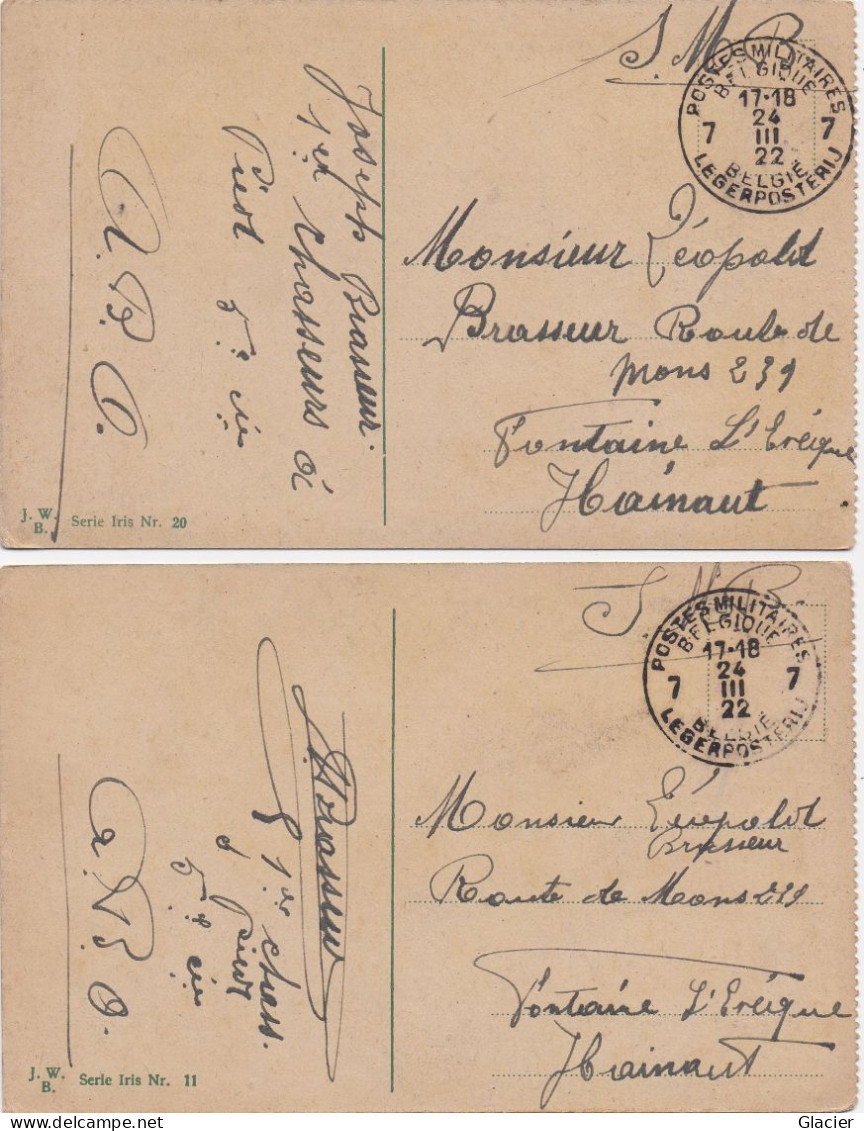 S. M.
POSTES MILITAIRES
BELGIQUE
17-18
24
III
22
7 7
BELGIË
LEGERPOSTERIJ
Monsieur Léopold
Brasseur Route de
Mons 239
Fontaine L'Evêque
Hainaut
Joseph Brasseur.
1er Chasseurs à
Pied 5e cie
A. B. O.
J. W. B. Serie Iris Nr. 20
S. M. B.
POSTES MILITAIRES
BELGIQUE
17-18
24
III
22
7 7
BELGIË
LEGERPOSTERIJ
Monsieur Léopold
Brasseur
Route de Mons 239
Fontaine L'Evêque
Hainaut
J Brasseur
1er Chass.
à Pied
5e cie
A. B. O.
J. W. B. Serie Iris Nr. 11
Glacier